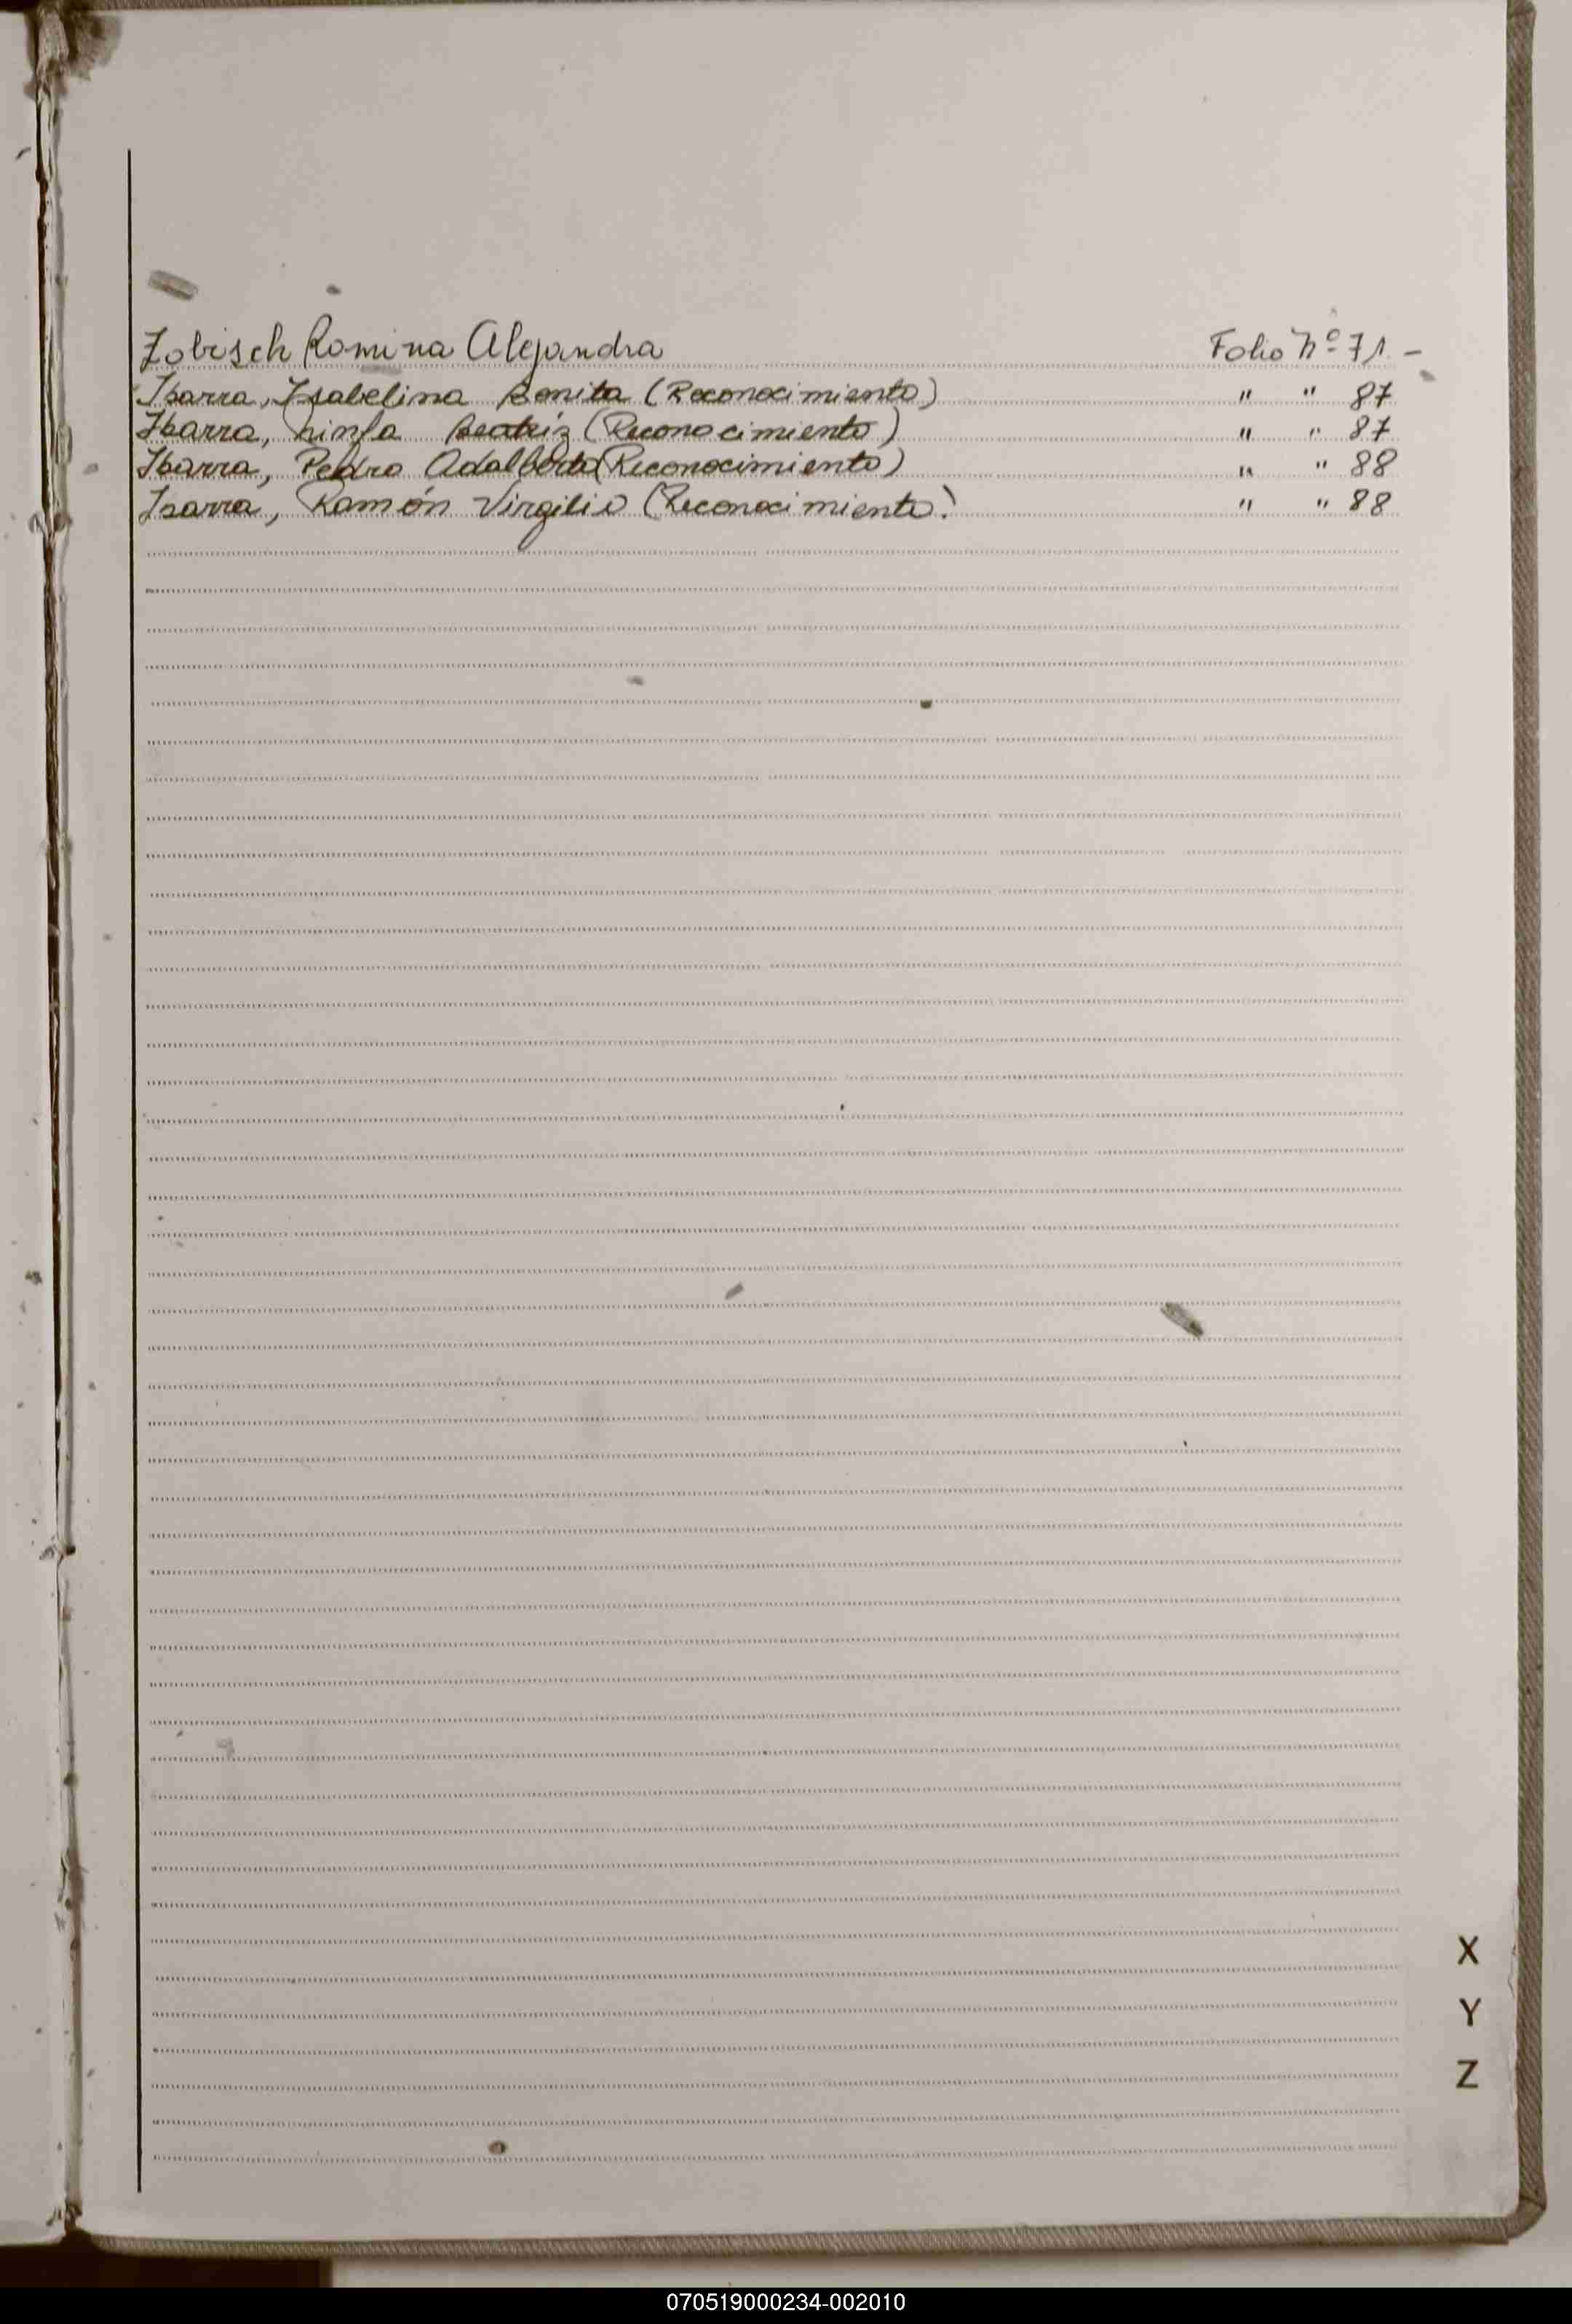 Zobisch Romina Alejandra Folio Nº 71.-
Ibarra, Isabelina Benita (Reconocimiento) " " 87
Ibarra, Ninfa Beatriz (Reconocimiento) " " 87
Ibarra, Pedro Adalberto (Reconocimiento) " " 88
Ibarra, Ramón Virgilio (Reconocimiento) " " 88
X
Y
Z
070519000234-002010